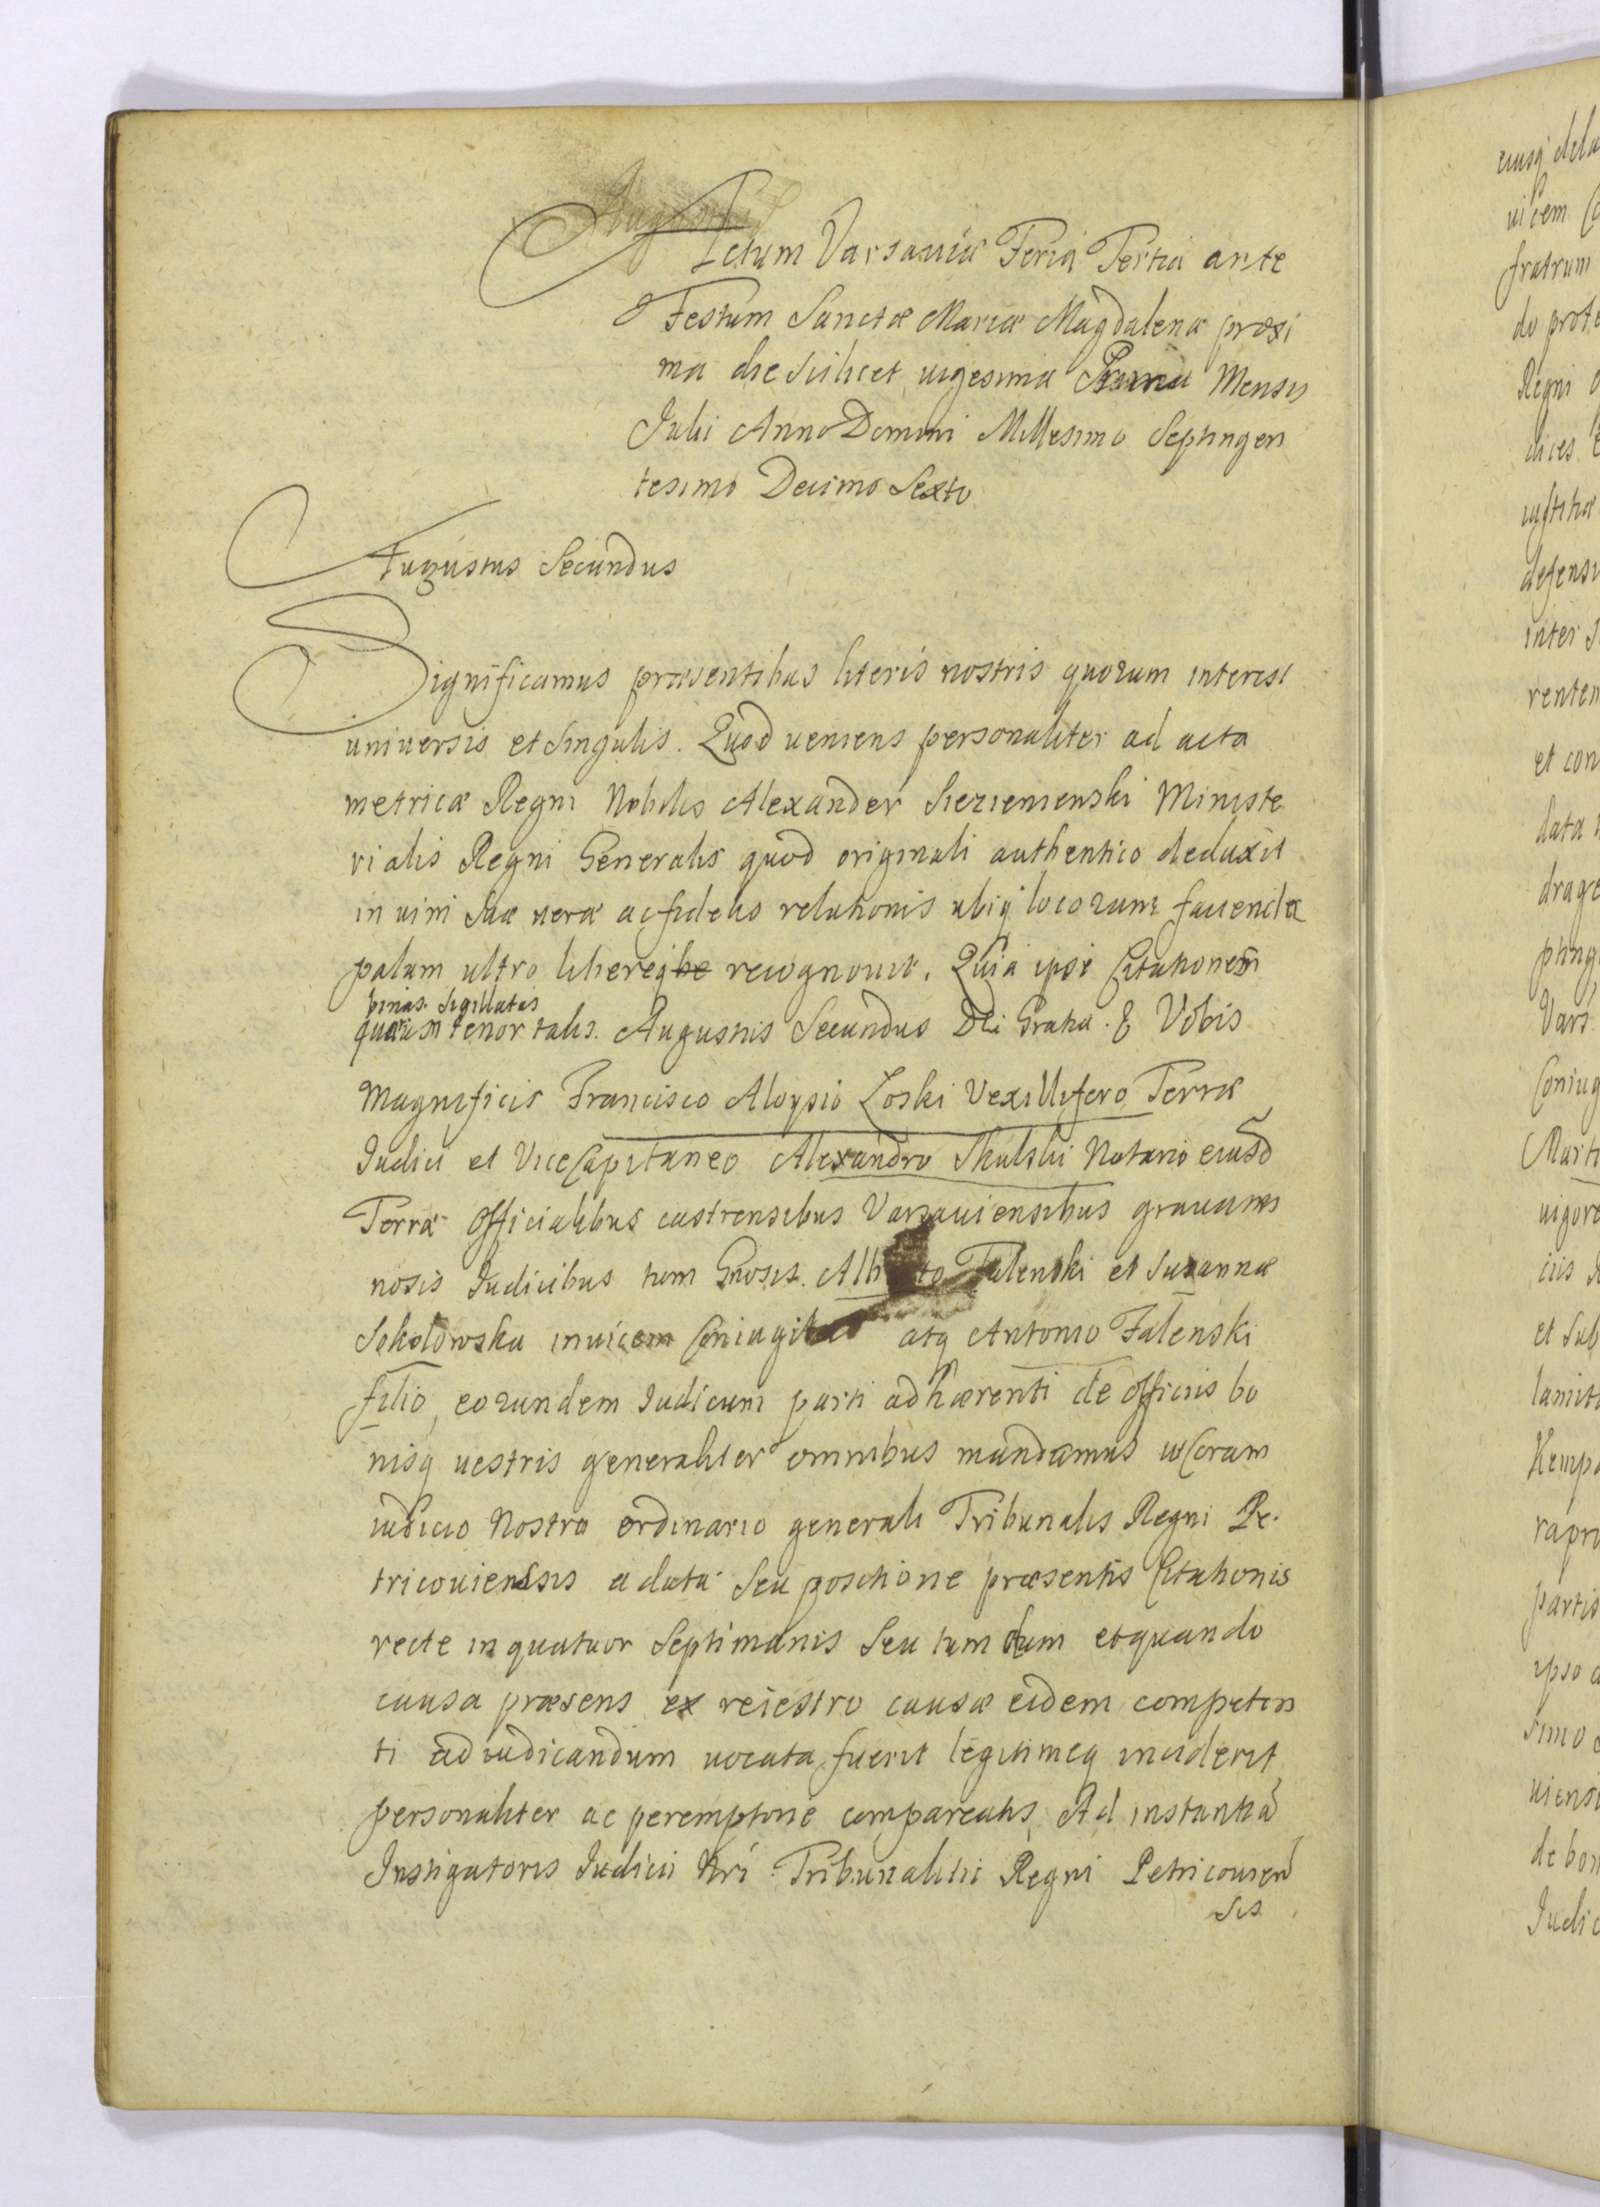 Actum Varsaviæ Feria Tertia ante
Festum Sanctæ Mariæ Magdalenæ proxi
ma die scilicet vigesima Prima Mensis
Julii Anno Domini Millesimo Septingen
tesimo Decimo Sexto
Augustus Secundus
Significamus præsentibus literis nostris quorum interest
universis et singulis. Quod veniens personaliter ad acta
metricæ Regni Nobilis Alexander Ministe
rialis Regni Generalis quod originali authentico deduxit
in vim suæ veræ ac fidelis relationis ubiq locorum favenda
palam ultro libereq recognovit. Quia ipse Citationem
binas sigillatas
quarum tenor talis. Augustus Secundus Dei Gratia & Vobis
Magnificis Francisco Aloysio Zoski Vexillifero Terræ
Iudici et ViceCapitaneo Alexandro Skulski Notario eiusd
Terræ Officialibus castrensibus Varsaviensibus gravami
nosis Iudicibus tum Gnosis. Alberto Falenski et Suzannæ
Sokolowska invicem Coniugibus atq Antonio Falenski
filio eorundem Iudicum parti adhærenti de officiis bo
nisq vestris generaliter omnibus mandamus ut Coram
iudicio Nostro ordinario generali Tribunalis Regni Pe
tricoviensis a data seu positione præsentis Citationis
recte in quatuor Septimanis seu tum dum et quando
causa præsens ex reiestro causæ eidem competen
ti ad iudicandum vocata fuerit legitimeq inciderit
personaliter ac peremptorie compareatis, Ad instantia
Instigatoris Iudicii Nri Tribunalitii Regni Petricovien
sis
eiusq
vicem
fratrum
do
Regni
inter
et con
data
Vars
Coniug
et sub
partis
ipso
simo
de bon